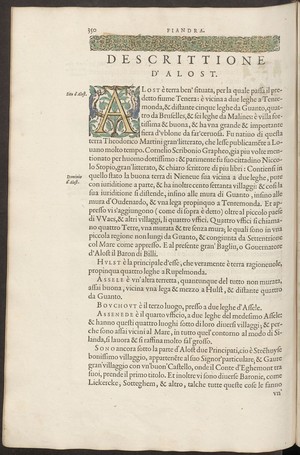 350 FIANDRA.
DESCRITTIONE
D'ALOST.
Sito d'Alost.
ALOST è terra ben' situata, per la quale passa il predetto
fiume Tenera: è vicina a due leghe a Tenemonda,
& distante cinque leghe da Guanto, quattro
da Bruselles, & sei leghe da Malines: è villa fortissima
& buona, & ha vna grande & importante
fiera d'vblone da far ceruosa. Fu natino di questa
terra Theodorico Martini gran' litterato, che lesse publicamente a Louano
molto tempo. Cornelio Scribonio Grapheo, già piu volte mentionato
per huomo dottissimo: & parimente fu suo cittadino Niccolo
Stopio, gran' litterato, & chiaro scrittore di piu libri: Contiensi in
Dominio
d'Alost.
quello stato la buona terra di Nieneue sua vicina a due leghe, pure
con iuridittione a parte, & ha inoltre cento settanta villaggi & cosi la
sua iuridittione si distende, insino alle mura di Guanto, insino alle
mura d'Oudenardo, & vna lega propinquo a Tenemonda. Et appresso
vi s'aggiungono (come di sopra è detto) oltre al piccolo paese
di VVaes, & altri villaggi, li quattro vffici. Questi quattro vffici si chiamano
quattro Terre, vna murata & tre senza mura, le quali sono in vna
piccola regione non lungi da Guanto, & congiunta da Settentrione
col Mare come appresso. E al presente gran' Baglio, o Gouernatore
d'Alost il Baron di Billi.
HVLST è la principale d'esse, che veramente è terra ragioneuole,
propinqua quattro leghe a Rupelmonda.
ASSELE è vn'altra terretta, quantunque del tutto non murata,
assai buona, vicina vna lega & mezzo a Hulst, & distante quattro
da Guanto.
BOVCHOVT è il terzo luogo, presso a due leghe d'Assele.
ASSENEDE è il quarto vfficio, a due leghe del medesimo Assele:
& hanno questi quattro luoghi sotto di loro diuersi villaggi; & perche
sono assai vicini al Mare, in tutto quel contorno al modo di Silanda,
si lauora & si raffina molto sal' grosso.
SONO ancora sotto la parte d'Alost due Principati, cio è Stechuyse
bonissimo villaggio, appartenente al suo Signor' particulare, & Gaure
gran' villaggio con vn' buon' Castello, onde il Conte d'Eghemont tra
suoi, prende il primo titolo. Et inoltre vi sono diuerse Baronie, come
Liekercke, Sotteghem, & altro, talche tutte queste cose le fanno
vn'